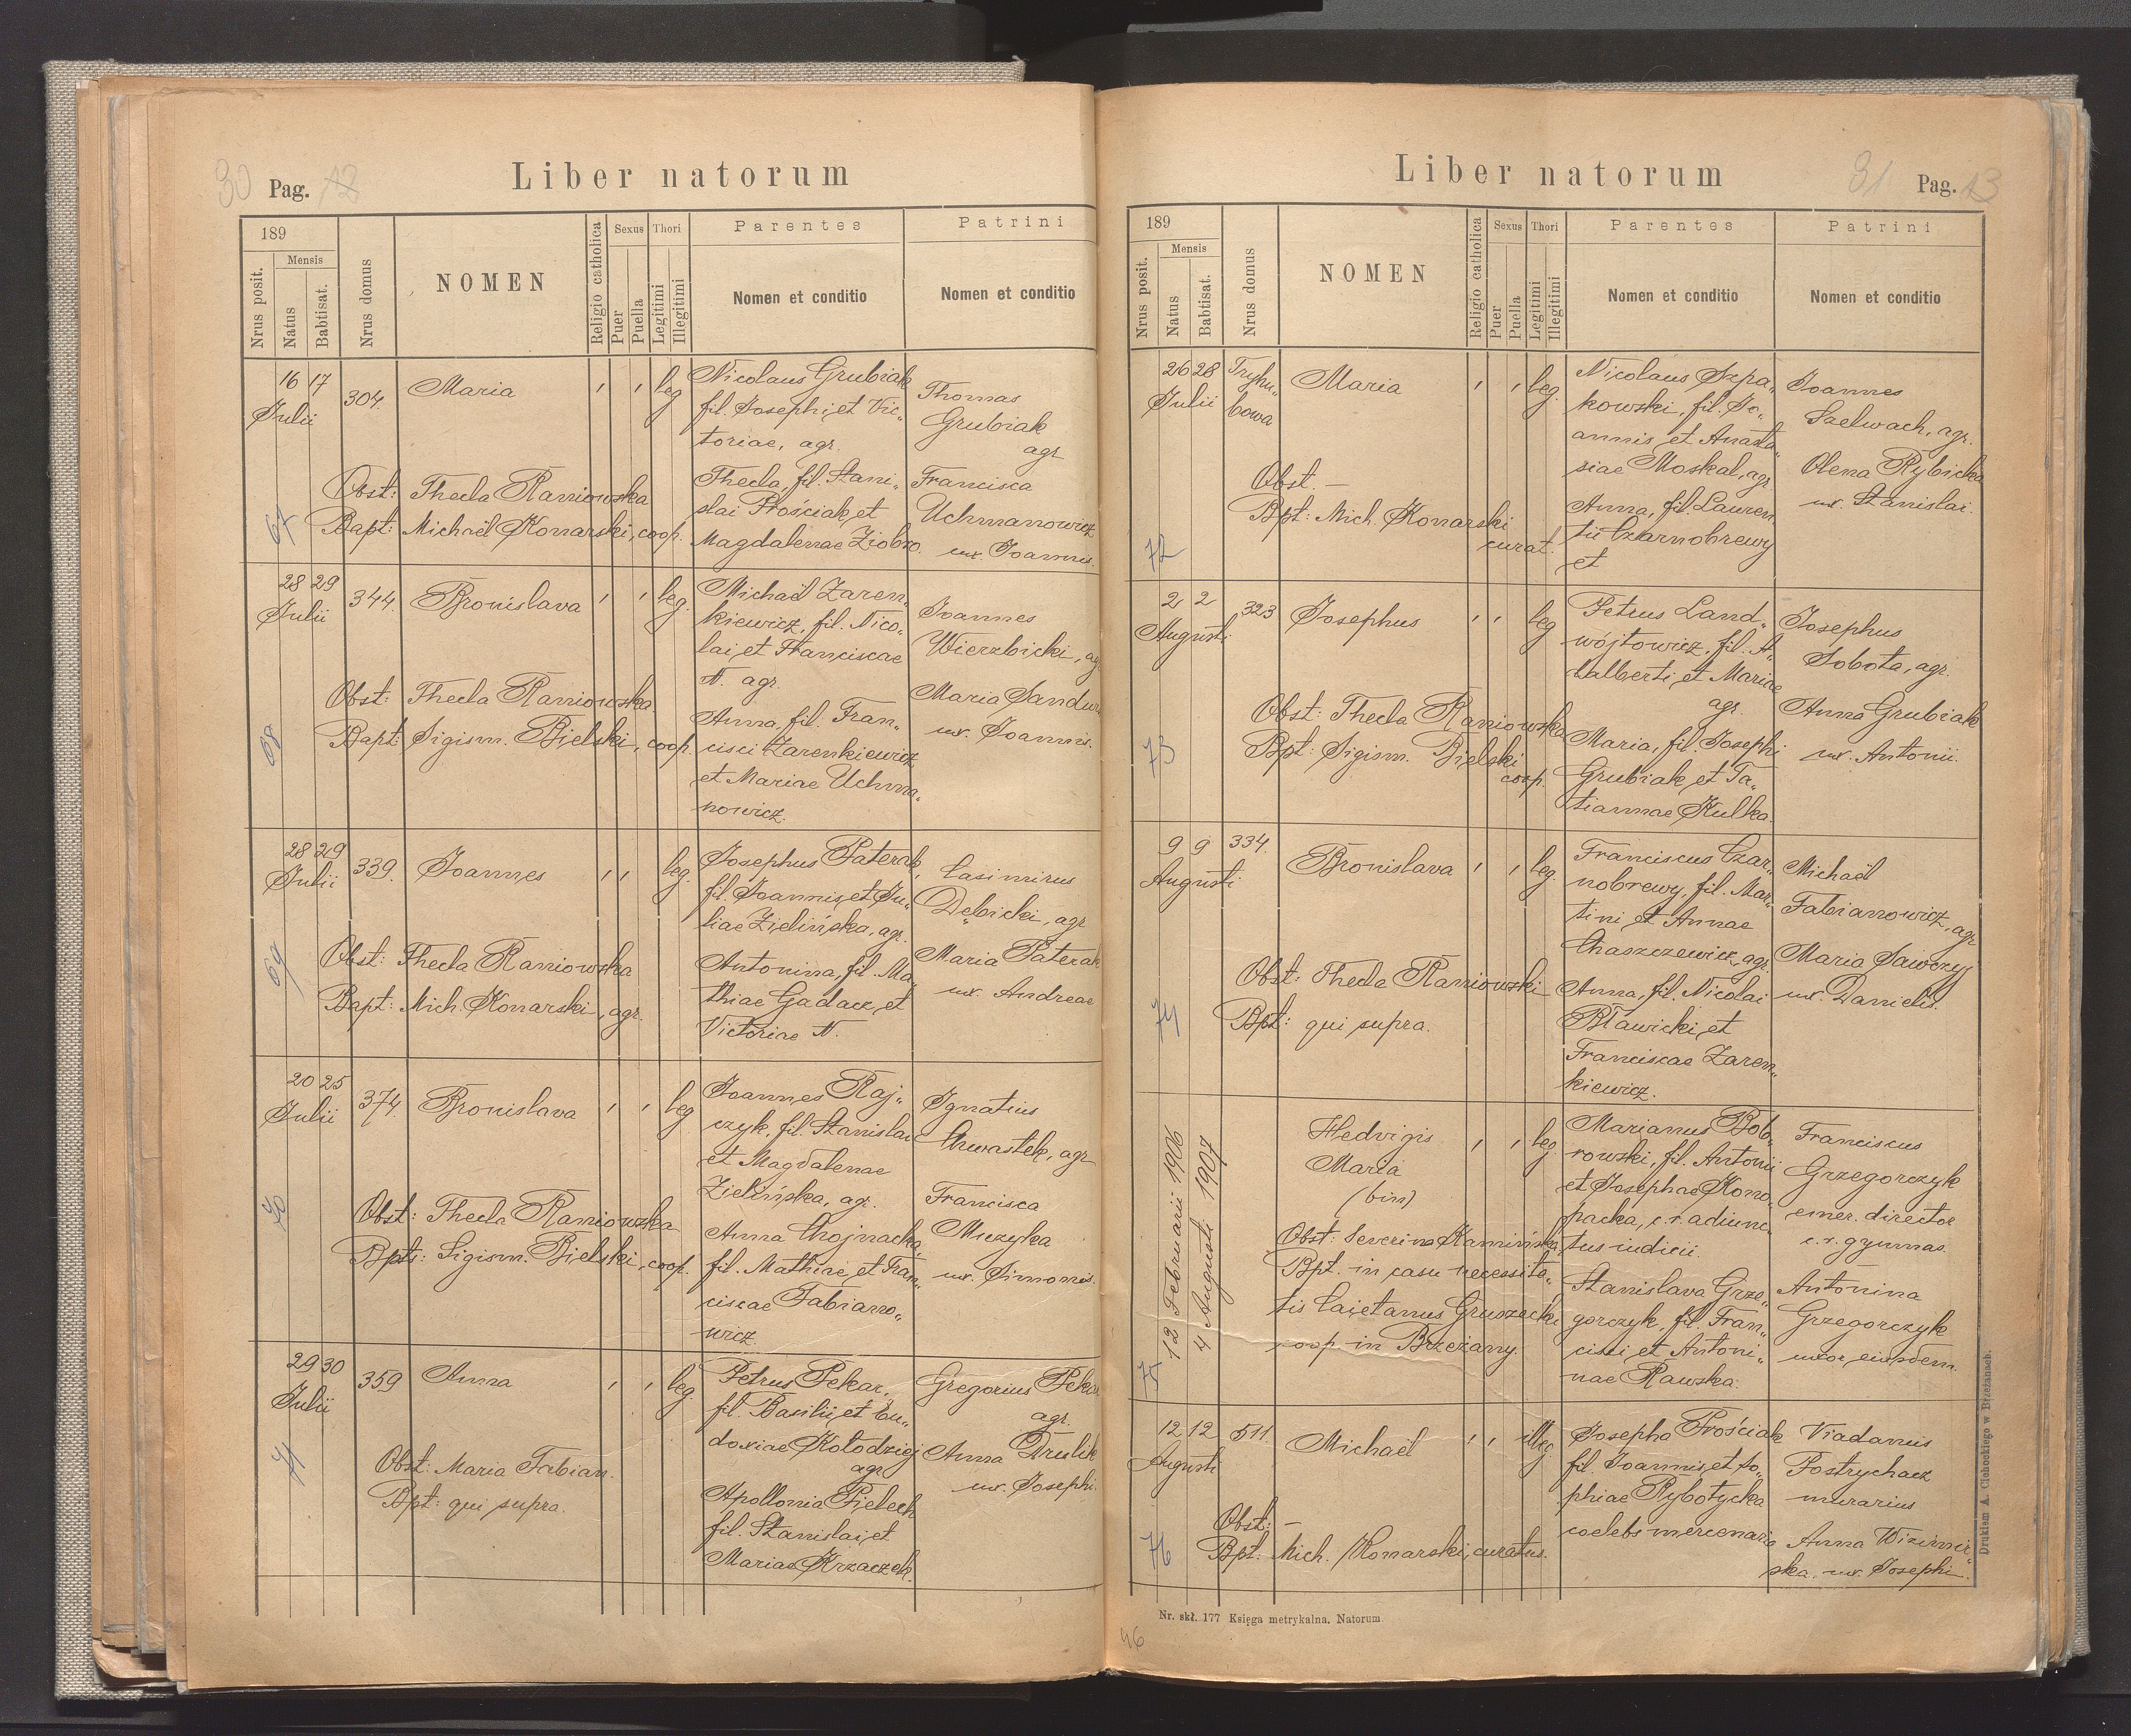 30 Pag. 12
Liber natorum
189
Mensis
Nrus posit.
Natus
Babtisat.
Nrus domus
NOMEN
Religio catholica
Sexus
Puer
Puella
Thori
Legitimi
Illegitimi
Parentes
Nomen et conditio
Patrini
Nomen et conditio
67
16 17
Julii
304.
Maria
leg
Nicolaus Grubiak
fil. Josephi, et Vic„
toriae, agr.
Thecla, fil. Stani„
slai Prościak, et
Magdalenae Ziobro.
Thomas
Grubiak
agr
Francisca
Uchmanowicz
ux. Joannis.
Obst: Thecla Raniowska
Bapt: Michaël Konarski, coop.
68
28 29
Julii
344.
Bronislava
leg.
Michaël Zaren„
kiewicz, fil. Nico„
lai, et Franciscae
N. agr.
Anna, fil. Fran„
cisci Zarenkiewicz
et Mariae Uchma„
nowicz.
Joannes
Wierzbicki, agr
Maria
ux. Joannis.
Obst: Thecla Raniowska.
Bapt: Sigism. Bielski, coop.
69
28 29
Julii
339.
Joannes
leg.
Josephus Paterak,
fil. Joannis, et Ju„
liae Zielińska, agr.
Antonina, fil. Ma„
thiae Gadacz, et
Victoriae N.
Casimirus
Dębicki, agr
Maria Paterak
ux. Andreae
Obst: Thecla Raniowska
Bapt: Mich. Konarski, agr.
70
20 25
Julii
374.
Bronislava
leg
Joannes Raj„
czyk, fil. Stanislai
et Magdalenae
Zielińska, agr.
Anna Chojnacka,
fil. Mathiae, et Fran„
ciscae Fabiano„
wicz
Ignatius
Chwastek, agr
Francisca
Muzyka
ux. Simonis.
Obst: Thecla Raniowska
Bpt: Sigism. Bielski, coop.
71
29 30
Julii
359
Anna
leg.
Petrus Pekar,
fil. Basilii, et Eu„
doxiae Kołodziej
agr
Apollonia Pielech
fil. Stanislai, et
Mariae Krzaczek.
Gregorius Pekar
agr.
Anna Drulik
ux. Josephi.
Obst: Maria Fabian.
Bpt: qui supra.
Liber natorum
31 Pag. 13
189
Mensis
Nrus posit.
Natus
Babtisat.
Nrus domus
NOMEN
Religio catholica
Sexus
Puer
Puella
Thori
Legitimi
Illegitimi
Parentes
Nomen et conditio
Patrini
Nomen et conditio
72
26 28
Julii
Tryhu„
bowa
Maria
leg.
Nicolaus Szpa„
kowski, fil. Jo„
annis, et Anasta„
siae Moskal, agr
Anna, fil. Lauren
tii Czarnobrewy
et
Joannes
Szelwach, agr.
Olena Rybicka
ux. Stanislai.
Obst. —
Bpt: Mich. Konarski
curat.
73
2 2
Augusti
323
Josephus
leg
Petrus Land„
wójtowicz, fil. A„
dalberti, et Mariae
agr.
Maria, fil. Josephi
Grubiak, et Ta„
tiannae Kulka.
Josephus
Sobota, agr.
Anna Grubiak
ux. Antonii.
Obst: Thecla Raniowska
Bpt: Sigism. Bielski
coop.
74
9 9
Augusti
334.
Bronislava
leg.
Franciscus Czar„
nobrewy, fil. Mar„
tini et Annae
Chaszczewicz, agr.
Anna, fil. Nicolai
Bławicki, et
Franciscae Zaren„
kiewicz.
Michaël
Fabianowicz, agr
Maria Sawczyj
ux. Danielis.
Obst: Thecla Raniowski
Bpt: qui supra.
75
12 Februarii 1906
4 Augusti 1907
Hedvigis
Maria
(bin)
leg.
Marianus Bob„
rowski, fil. Antonii
et Josephae Kono„
packa, c. r. adiunc„
tus iudicii.
Stanislava Grze„
gorczyk, fil. Fran„
cisci et Antoni„
nae Rawska.
Franciscus
Grzegorczyk
emer. director
c. r. gymnas.
Antonina
Grzegorczyk
uxor eiusdem.
Obst: Severina Kamińska
Bpt. in casu necessita„
tis Caietanus Gruszecki
coop in Brzeżany.
76
12 12
Augusti
511.
Michaël
illeg.
Josepha Prościak
fil. Joannis, et So„
phiae Rybotycka
coelebs mercenaria
Viadanus
Postrychacz
murarius
Anna Wizimir„
ska, ux. Josephi.
Obst: —
Bpt: Mich. Konarski, curatus.
Nr. skł. 177 Księga metrykalna. Natorum
Drukiem A. Cichockiego w Brzeżanach.
46